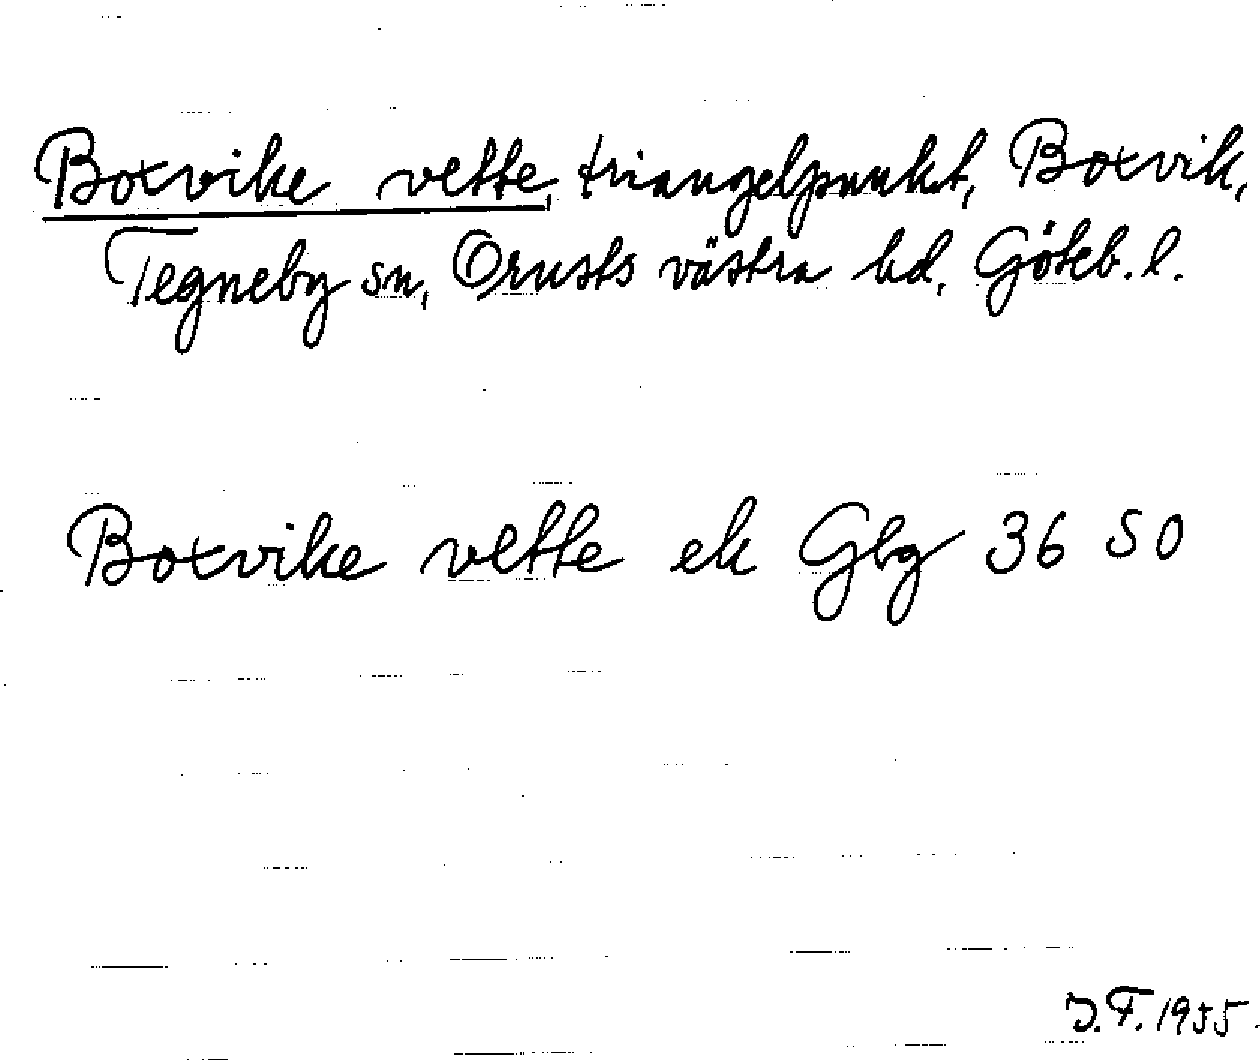 Boxvike vette, triangelpunkt, Boxvik,
Tegneby sn, Orusts västra hd, Göteb. l.
Boxvike vette ek Gbg 36 SO
J.F. 1955.